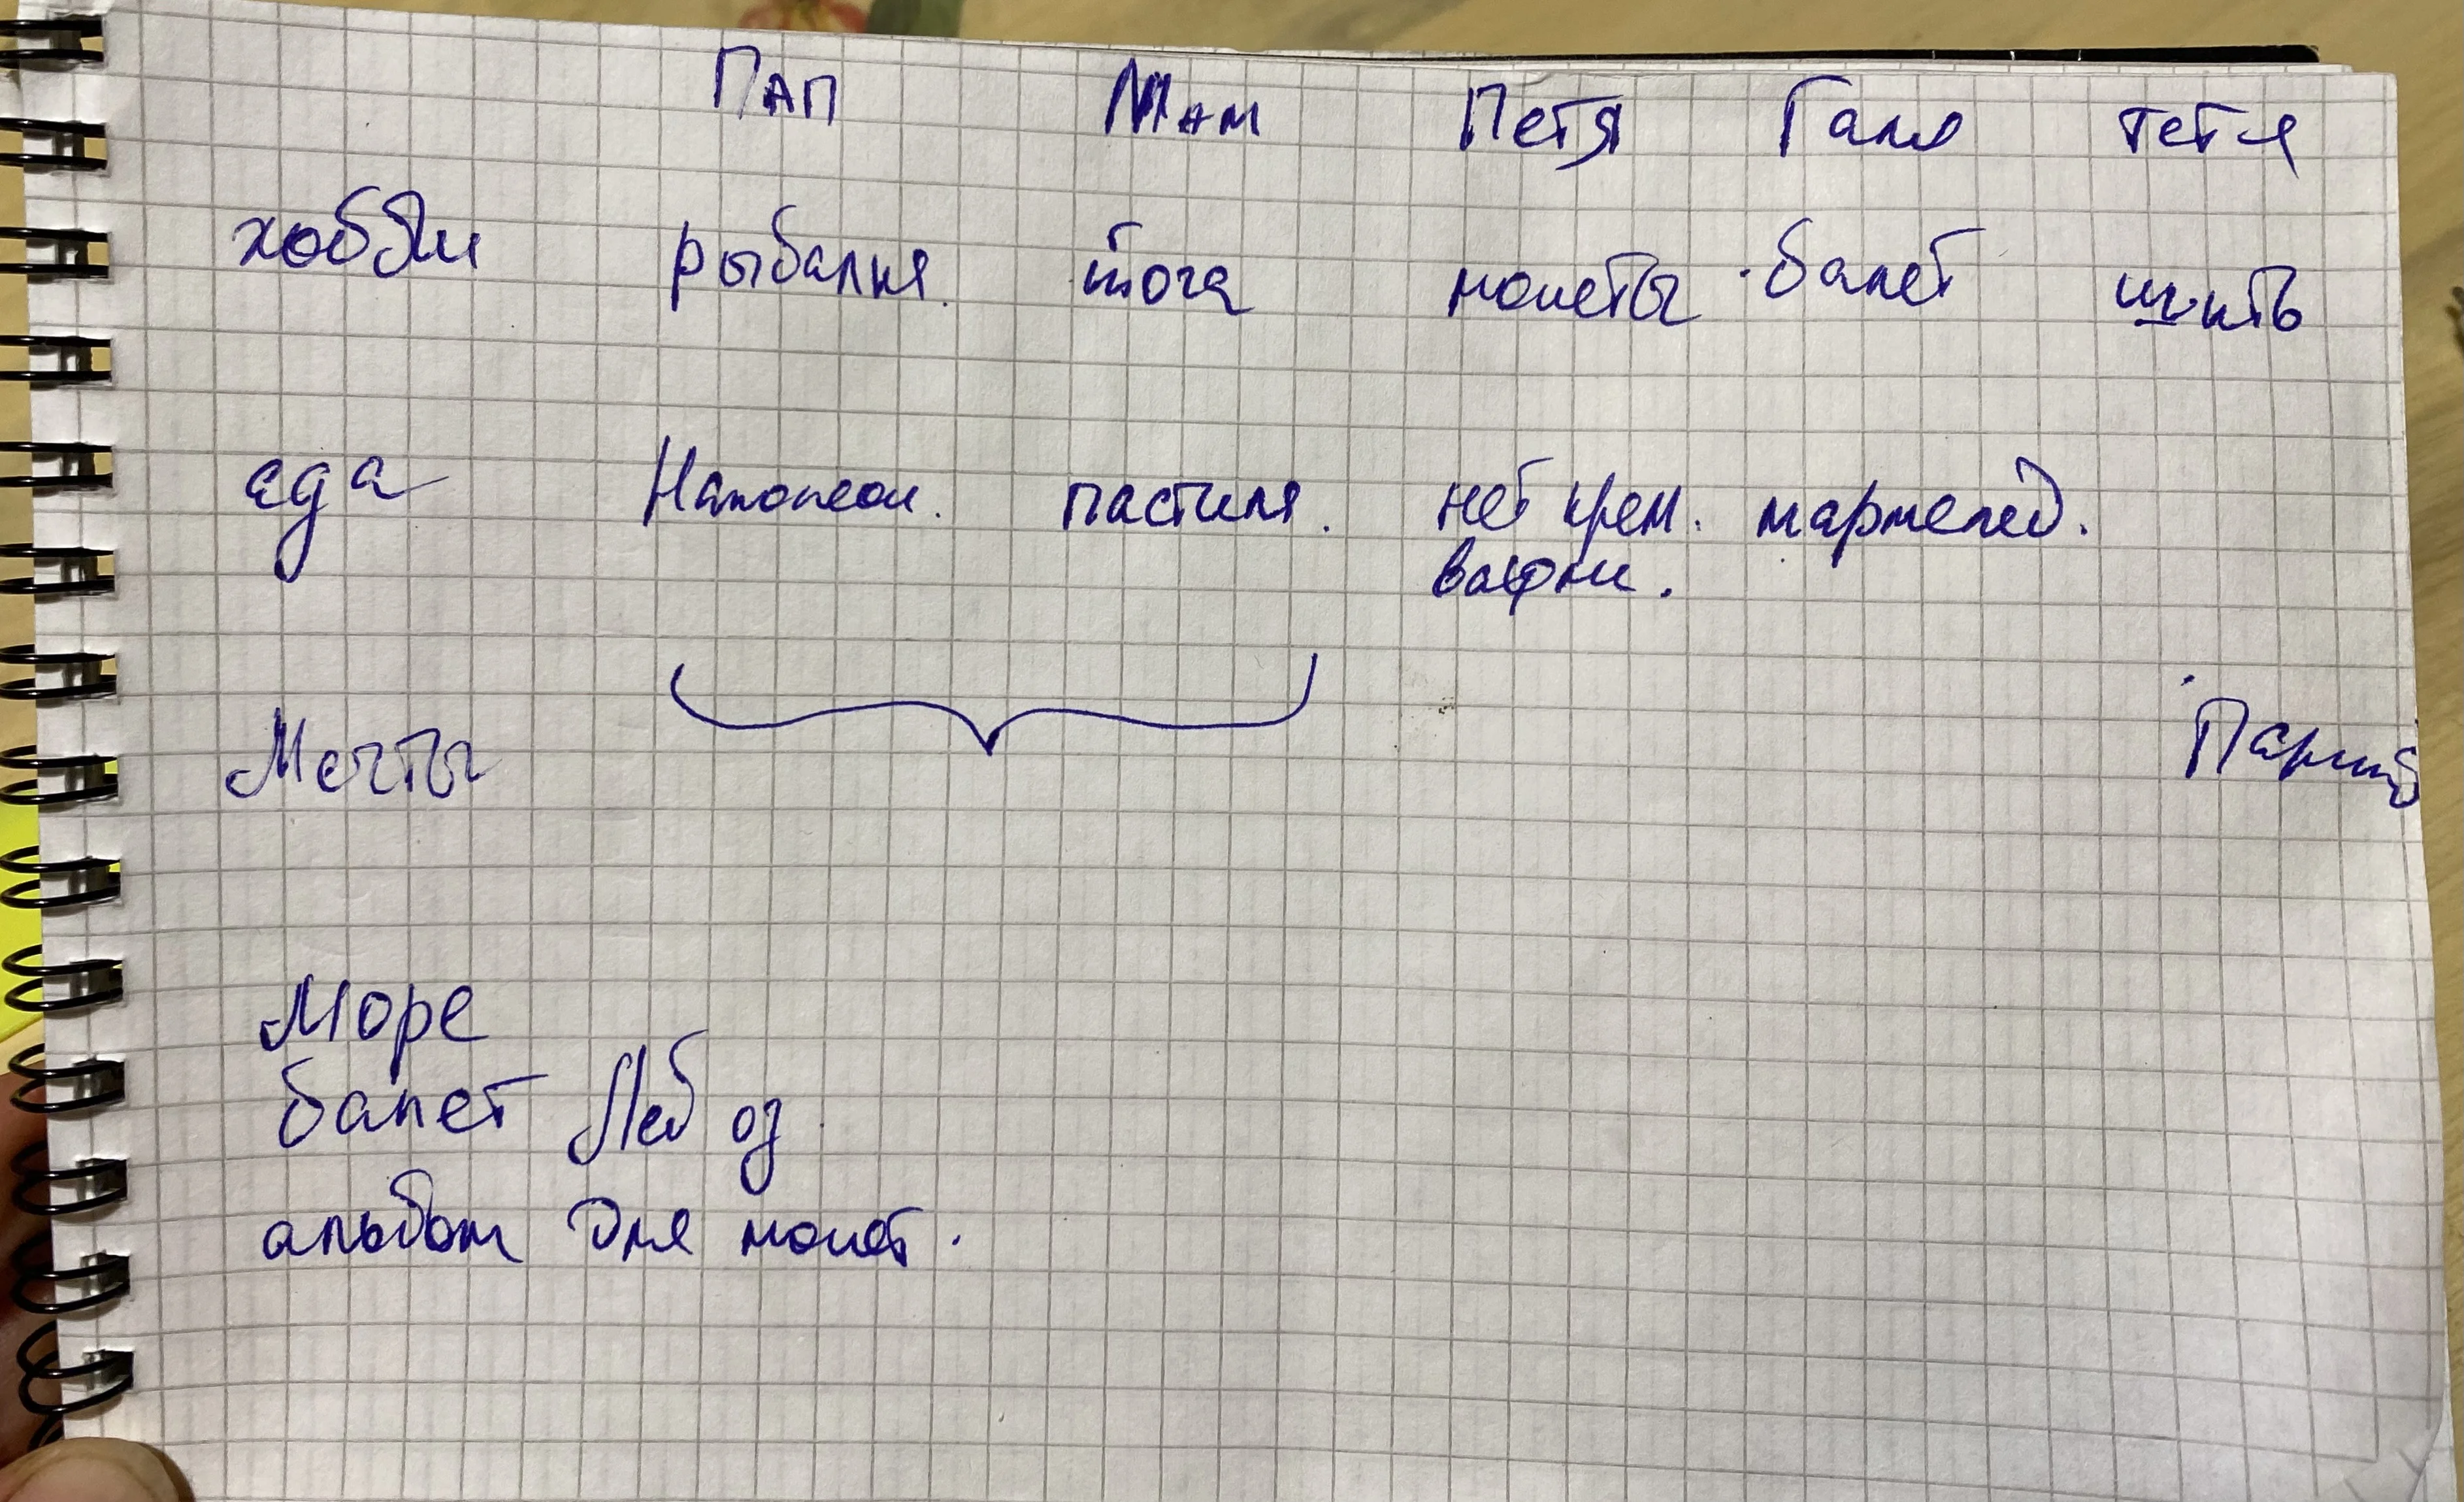 Пап Мам Петя Галя тетя
хобби рыбалка. йога монеты балет шить
еда Наполеон. пастила. нет крем. мармелад.
вафли.
Мечты Париж
Море
балет Леб оз
альбом для монет.